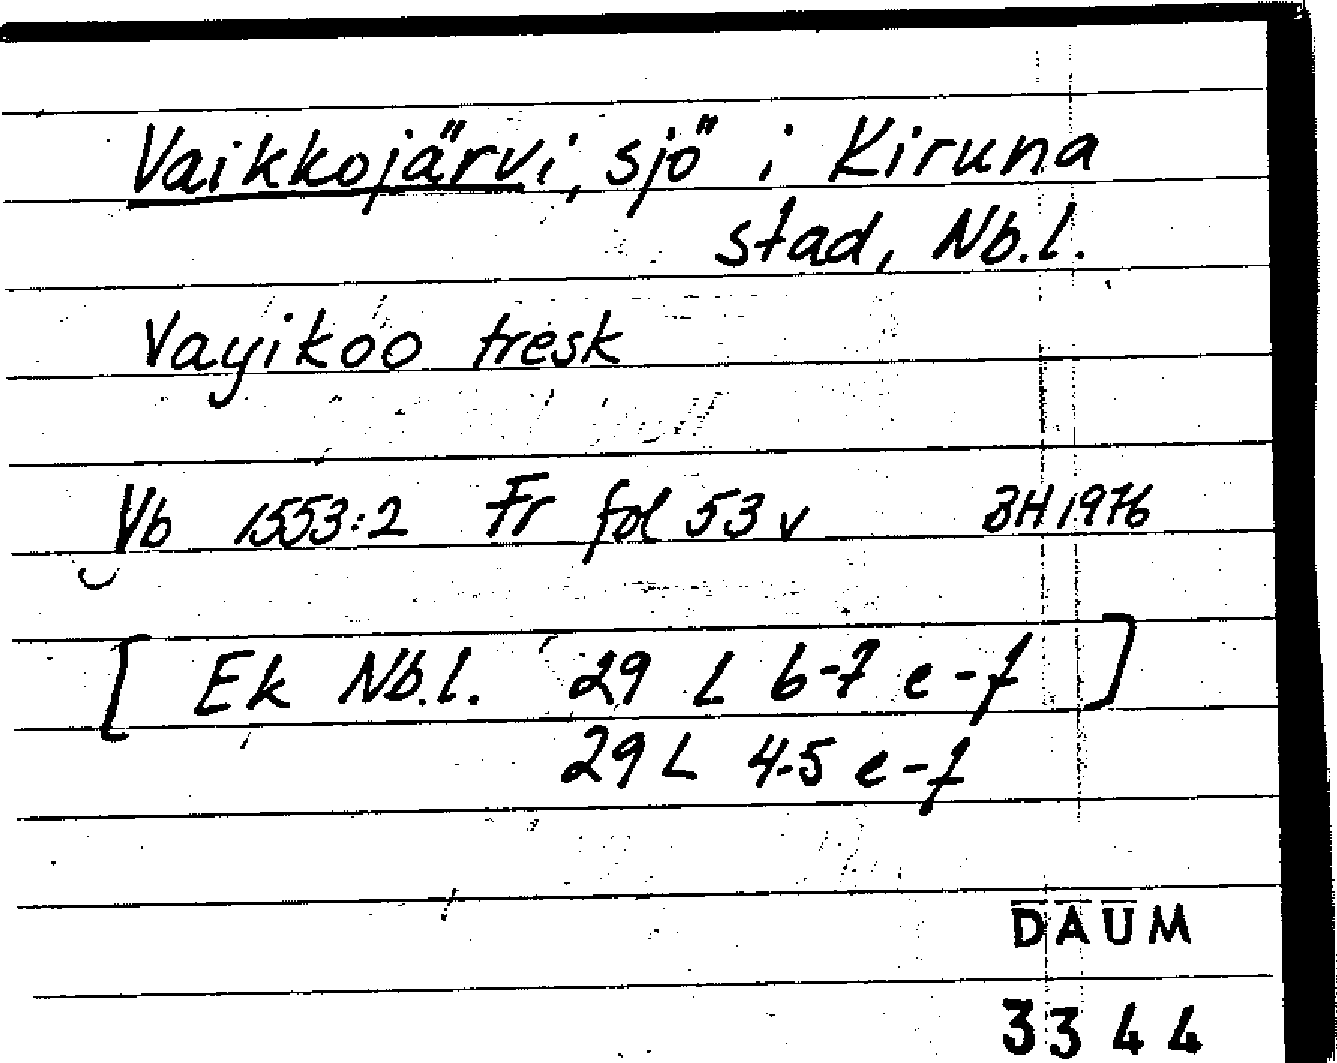 Vaikkojärvi, sjö i Kiruna
stad, Nb.l.
Vayikoo tresk
Vb 1553:2 Fr fol 53 v BH 1976
[ Ek Nb.l. 29 L 6-7 e-f ]
29 L 4-5 e-f
DAUM
3344